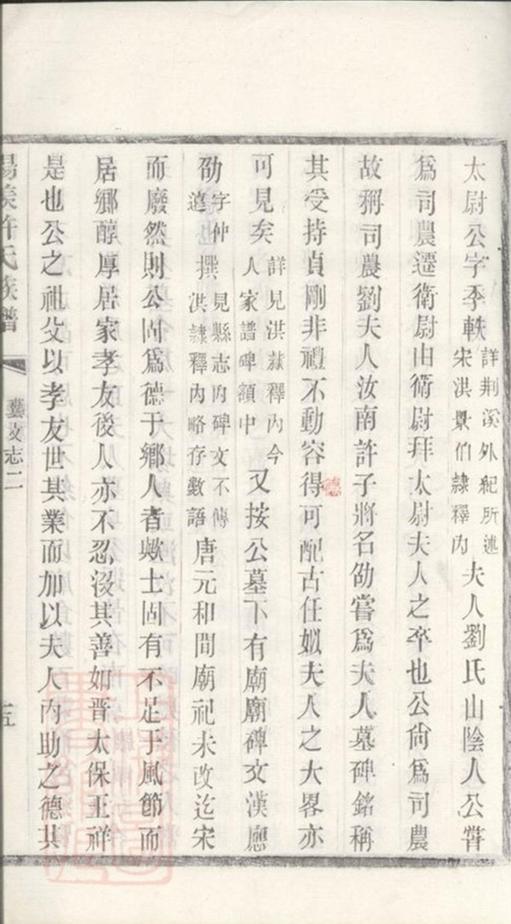 太尉公字季軼詳荆溪外紀所述宋洪景伯隷釋內夫人劉氏山陰人公嘗
爲司農遷衛尉由衛尉拜太尉夫人之卒也公尙爲司農
故稱司農劉夫人汝南許子將名劭嘗爲夫人墓碑銘稱
其受持貞剛非禮不動容得可配古任姒夫人之大畧亦
可見矣詳見洪隷釋內今人家譜碑額中又按公墓下有廟廟碑文漢應
劭字仲遠撰見縣志內碑文不傳洪隷釋內略存數語唐元和間廟祀未改迄宋
而廢然則公固爲德于鄉人者歟士固有不足于風節而
居鄉醇厚居家孝友後人亦不忍沒其善如晋太保王祥
是也公之祖父以孝友世其業而加以夫人內助之德其
陽羨許氏族譜
藝文志二
五